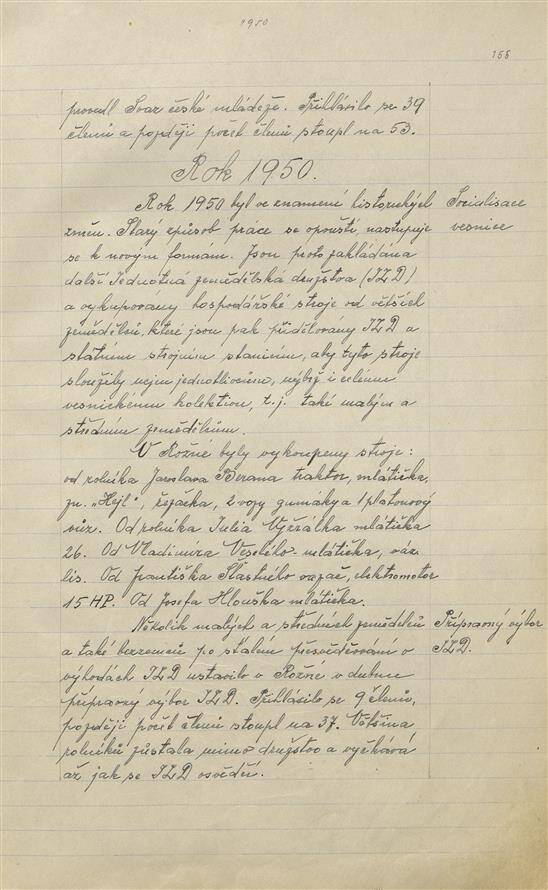 1950
155
provedl Svaz české mládeže. Přihlásilo se 39
členů a později počet členů stoupl na 53.
Rok 1950.
Rok 1950 byl ve znamení historických
Socialisace
změn. Starý způsob práce se opouští, nastupuje
vesnice
se k novým formám. Jsou proto zakládána
další Jednotná zemědělská družstva (JZD)
a vykupovány hospodářské stroje od větších
zemědělců, které jsou pak přidělovány JZD a
státním strojním stanicím, aby tyto stroje
sloužily nejen jednotlivcům, nýbrž i celému
vesnickému kolektivu, t.j. také malým a
středním zemědělcům.
V Rožné byly vykoupeny stroje:
od rolníka Jaroslava Berana traktor, mlátička,
zn. „Hejl", řezačka, 2 vozy gumáky a 1 platonový
vůz. Od rolníka Julia Vyžrálka mlátička
26. Od Vladimíra Veselého - mlátička,
lis. Od Františka Šťastného vazač, elektromotor
15 HP. Od Josefa Hlouška mlátička.
Několik malých a středních zemědělců
Přípravný výbor
a také bezzemků po stálém přesvědčování o
JZD.
výhodách JZD ustavilo v Rožné v dubnu
přípravný výbor JZD. Přihlásilo se 9 členů,
později počet členů stoupl na 37. Většina
rolníků zůstala mimo družstvo a vyčkává
až jak se JZD osvědčí.